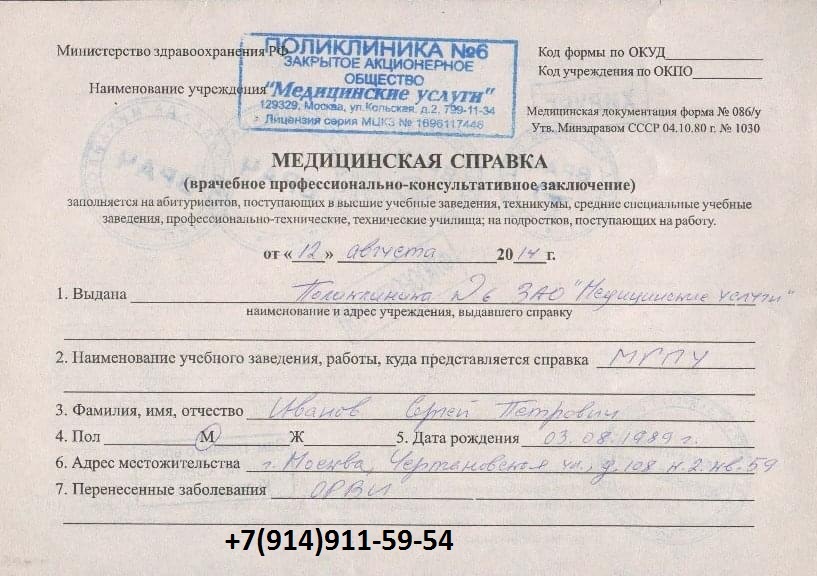 Министерство здравоохранения РФ
ПОЛИКЛИНИКА №6
ЗАКРЫТОЕ АКЦИОНЕРНОЕ
ОБЩЕСТВО
"Медицинские услуги"
129329, Москва, ул.Кольская, д.2, 799-11-34
Лицензия серия МЦКЗ № 1696117446
Наименование учреждения
Код формы по ОКУД
Код учреждения по ОКПО
Медицинская документация форма № 086/у
Утв. Минздравом СССР 04.10.80 г. № 1030
МЕДИЦИНСКАЯ СПРАВКА
(врачебное профессионально-консультативное заключение)
заполняется на абитуриентов, поступающих в высшие учебные заведения, техникумы, средние специальные учебные
заведения, профессионально-технические, технические училища; на подростков, поступающих на работу.
от « 12 » августа 2014 г.
1. Выдана Поликлиника №6 ЗАО "Медицинские услуги"
наименование и адрес учреждения, выдавшего справку
2. Наименование учебного заведения, работы, куда представляется справка МГПУ
3. Фамилия, имя, отчество Иванов Сергей Петрович
4. Пол М Ж 5. Дата рождения 03.08.1989 г.
6. Адрес местожительства г. Москва, Чертановская ул., д.108 к.2. кв.59
7. Перенесенные заболевания ОРВИ
+7(914)911-59-54